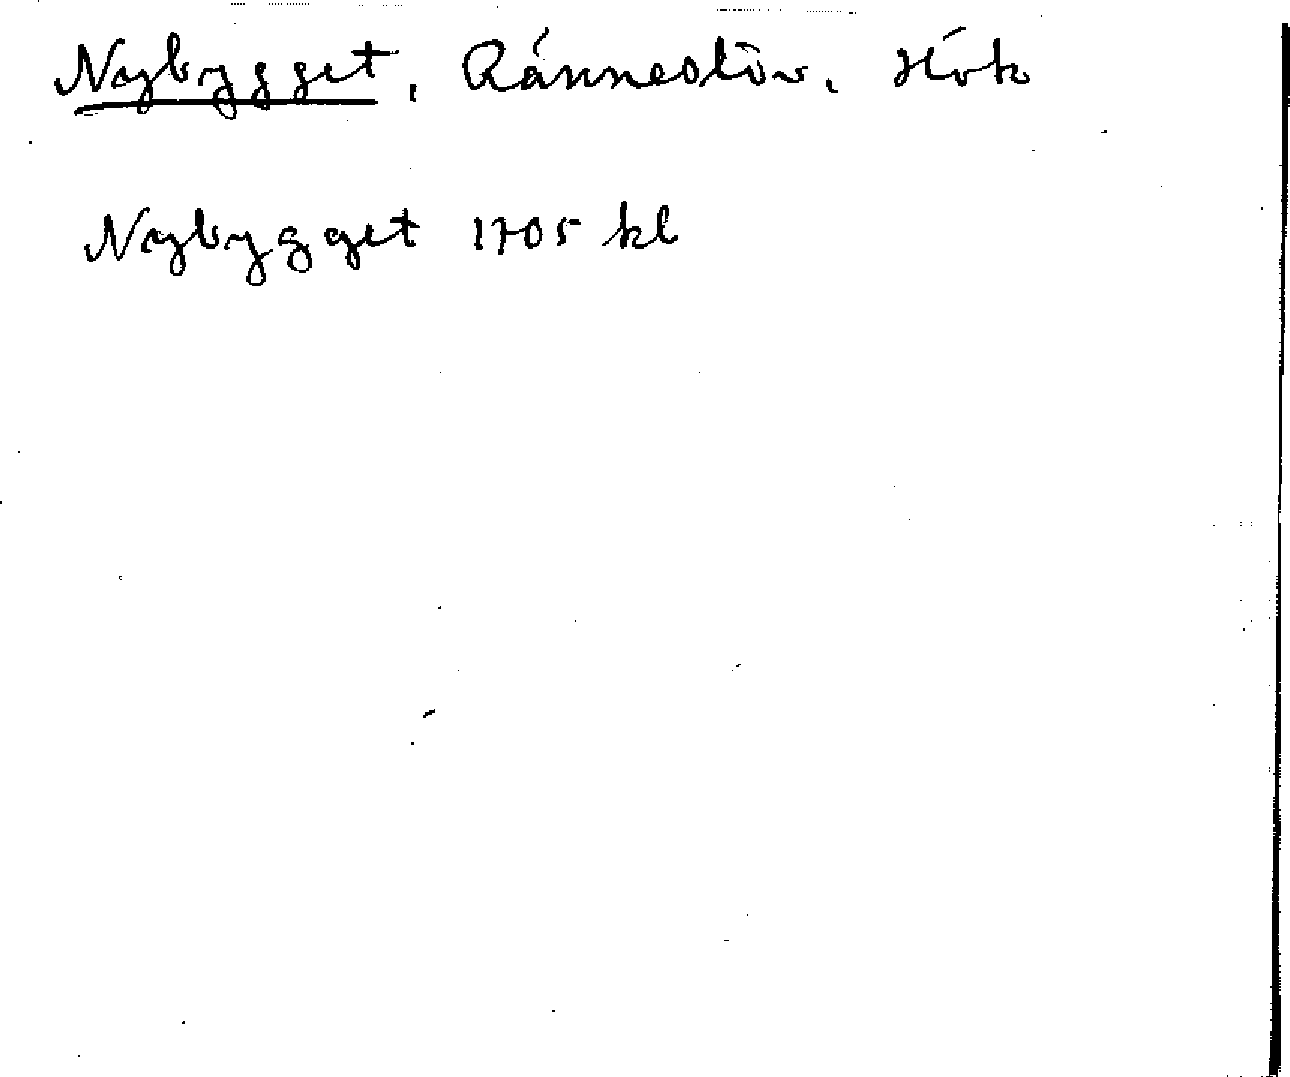 Nybygget, Ränneslöv, Hök
Nybygget 1705 kl